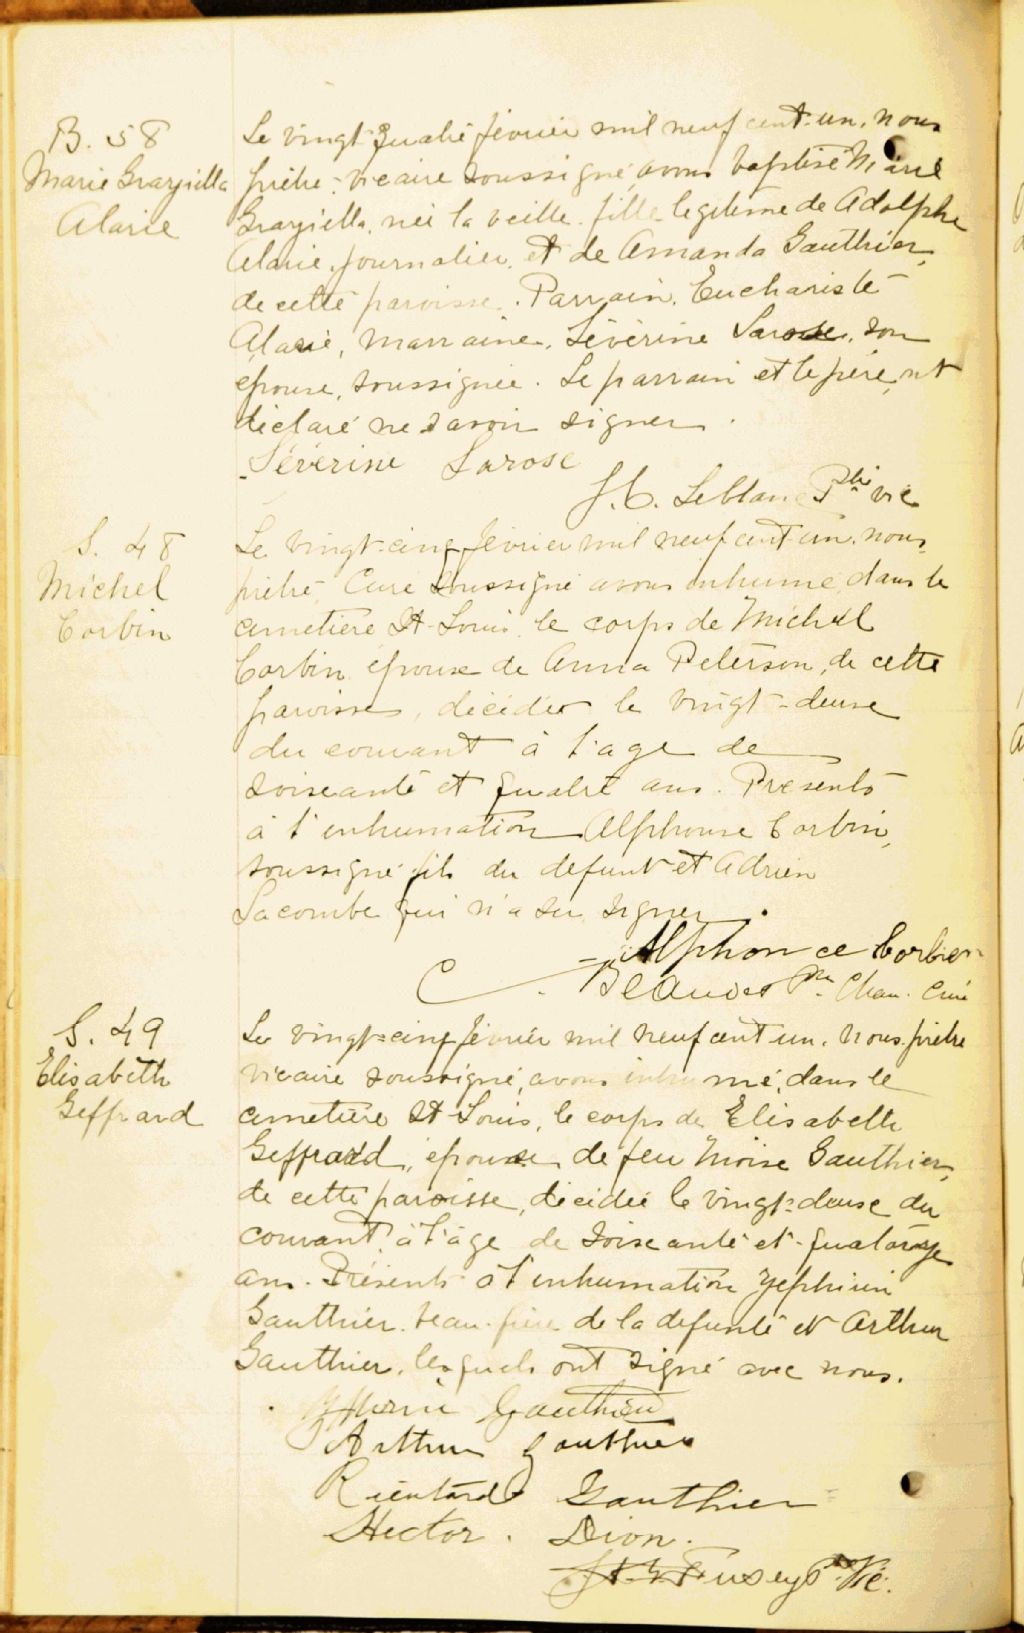 B. 58
Marie Graziella
Alarie
Le vingt-quatre février mil neuf cent-un, nous
prêtre-vicaire soussigné, avons baptisé Marie
Graziella, née la veille, fille légitime de Adolphe
Alarie, journalier, et de Amanda Gauthier,
de cette paroisse. Parrain, Euchariste
Alarie, marraine, Séverine Larose, son
épouse, soussignée. Le parrain et le père, ont
déclaré ne savoir signer.
Séverine Larose
J. C. Leblanc Ptre vic
S. 48
Michel
Corbin
Le vingt-cinq février mil neuf cent-un, nous
prêtre Curé soussigné avons inhumé, dans le
cimetière St-Louis, le corps de Michel
Corbin, époux de Anna Peterson, de cette
paroisse, décédé le vingt-deux
du courant à l'age de
soixante et quatre ans. Présents
à l'inhumation Alphonse Corbin,
soussigné fils du défunt et Adrien
Lacombe qui n'a su signer.
Alphonce Corbin
C. Beaudet Ptre Chan. Curé
S. 49
Elisabeth
Geffrard
Le vingt-cinq février mil neuf cent un, nous prêtre
vicaire soussigné, avons inhumé, dans le
cimetière St-Louis, le corps de Elisabeth
Geffrard, épouse de feu Moïse Gauthier,
de cette paroisse, décédée le vingt-deux du
courant, à l'âge de soixante et quatorze
ans. Présents à l'inhumation Zéphirin
Gauthier, beau-frère de la défunte et Arthur
Gauthier, lesquels ont signé avec nous.
Gauthier
Arthur Gauthier
Gauthier
Hector Dion.
Fusey Ptre Vic.